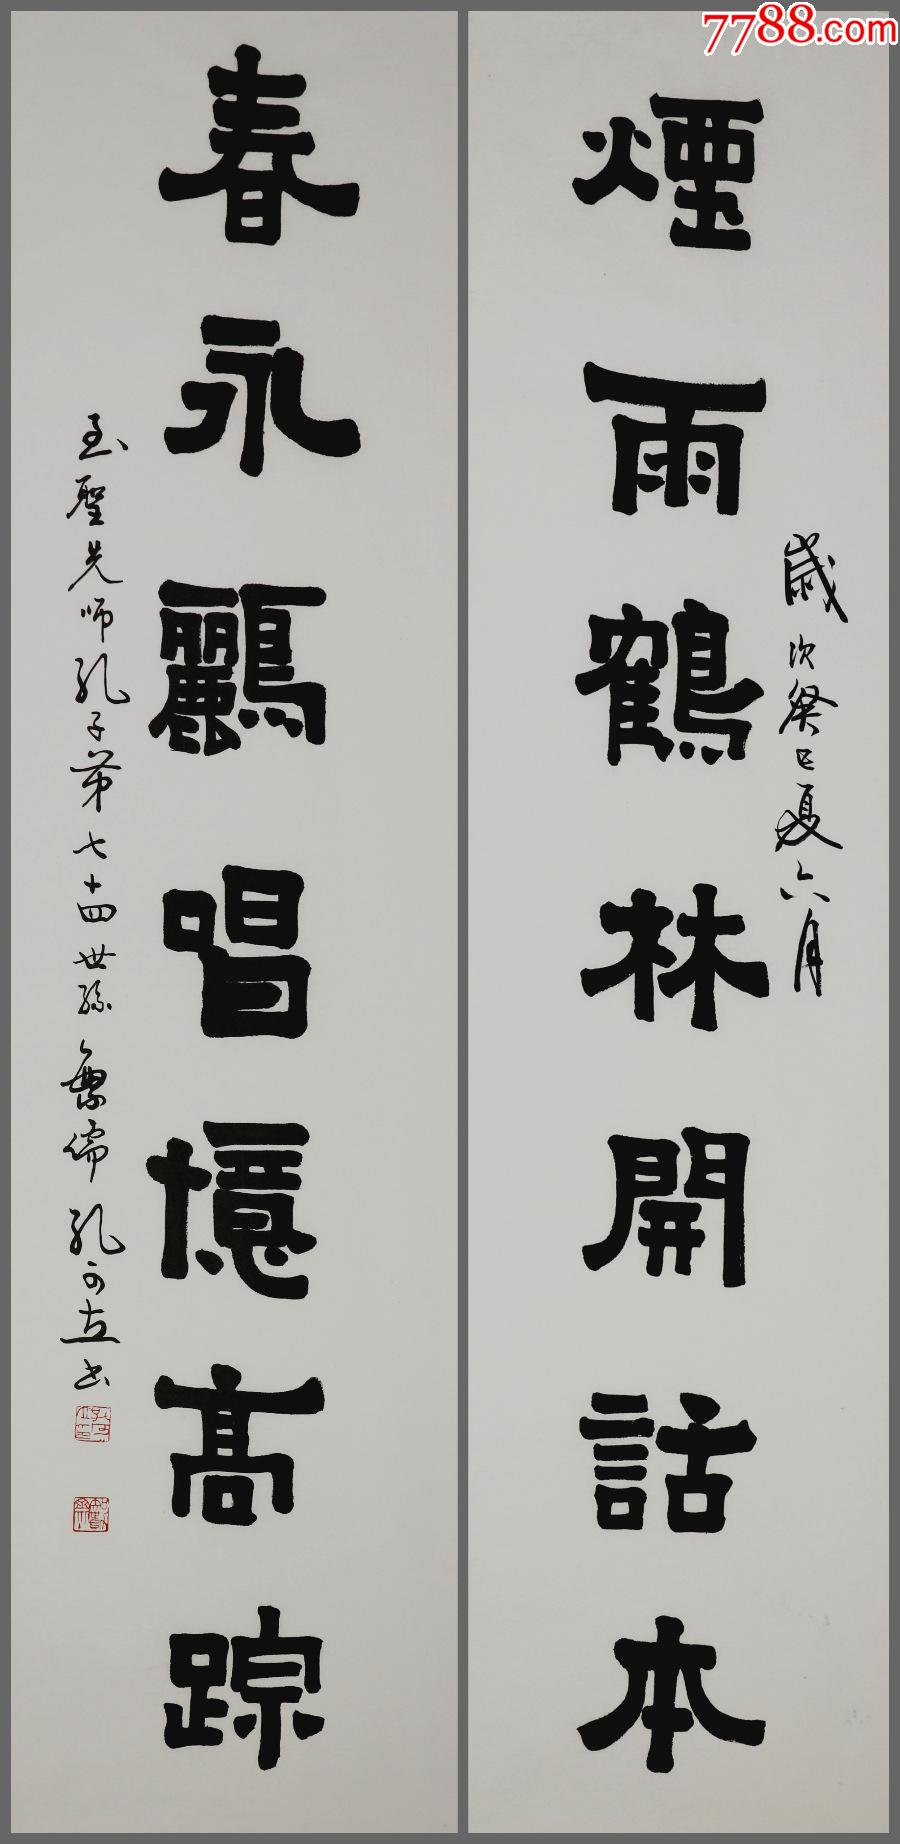 7788.com
歲次癸巳夏六月
煙雨鶴林開話本
春永鸝唱憶高踪
至聖先師孔子第七十四世孫魯儒孔可立書